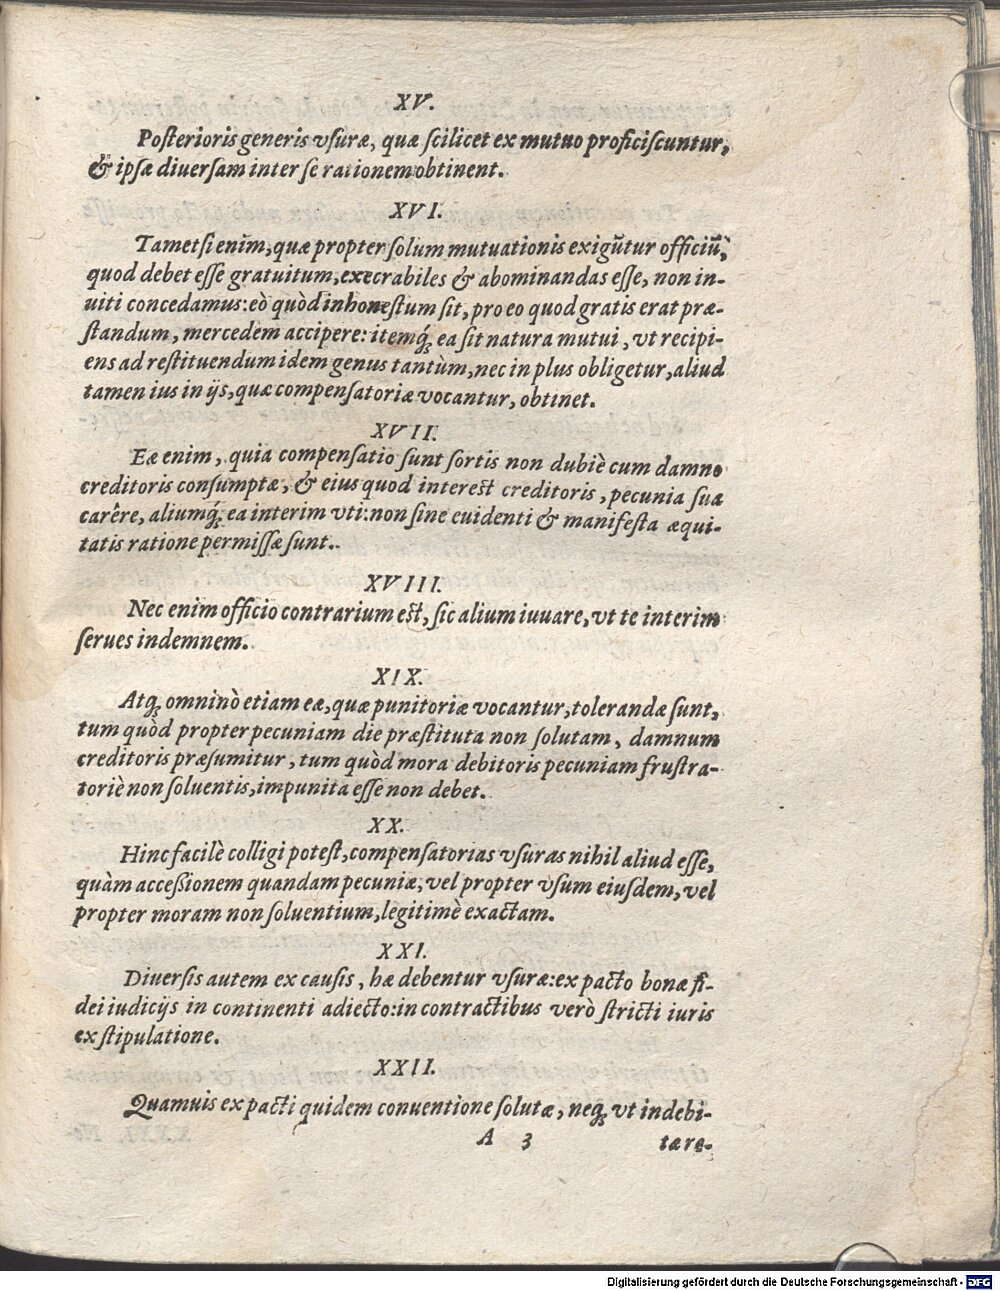 XV.
Posterioris generis vsuræ, quæ scilicet ex mutuo proficiscuntur,
& ipsæ diuersam inter se rationem obtinent.
XVI.
Tametsi enim, quæ propter solum mutuationis exigūtur officiū,
quod debet esse gratuitum, execrabiles & abominandas esse, non in-
uiti concedamus: eò quòd inhonestum sit, pro eo quod gratis erat præ-
standum, mercedem accipere: itemq́; ea sit natura mutui, vt recipi-
ens ad restituendum idem genus tantùm, nec in plus obligetur, aliud
tamen ius in ijs, quæ compensatoriæ vocantur, obtinet.
XVII.
Eæ enim, quia compensatio sunt sortis non dubiè cum damno
creditoris consumptæ, & eius quod interest creditoris, pecunia sua
carêre, aliumq́; ea interim vti: non sine euidenti & manifesta æqui-
tatis ratione permissæ sunt.
XVIII.
Nec enim officio contrarium est, sic alium iuuare, vt te interim
serues indemnem.
XIX.
Atq; omninò etiam eæ, quæ punitoriæ vocantur, tolerandæ sunt,
tum quòd propter pecuniam die præstituta non solutam, damnum
creditoris præsumitur, tum quòd mora debitoris pecuniam frustra-
toriè non soluentis, impunita esse non debet.
XX.
Hinc facilè colligi potest, compensatorias vsuras nihil aliud esse,
quàm accessionem quandam pecuniæ, vel propter vsum eiusdem, vel
propter moram non soluentium, legitimè exactam.
XXI.
Diuersis autem ex causis, hæ debentur vsuræ: ex pacto bonæ fi-
dei iudicijs in continenti adiecto: in contractibus verò stricti iuris
ex stipulatione.
XXII.
Quamuis ex pacti quidem conuentione solutæ, neq; vt indebi-
A 3 tæ re-
Digitalisierung gefördert durch die Deutsche Forschungsgemeinschaft - DFG